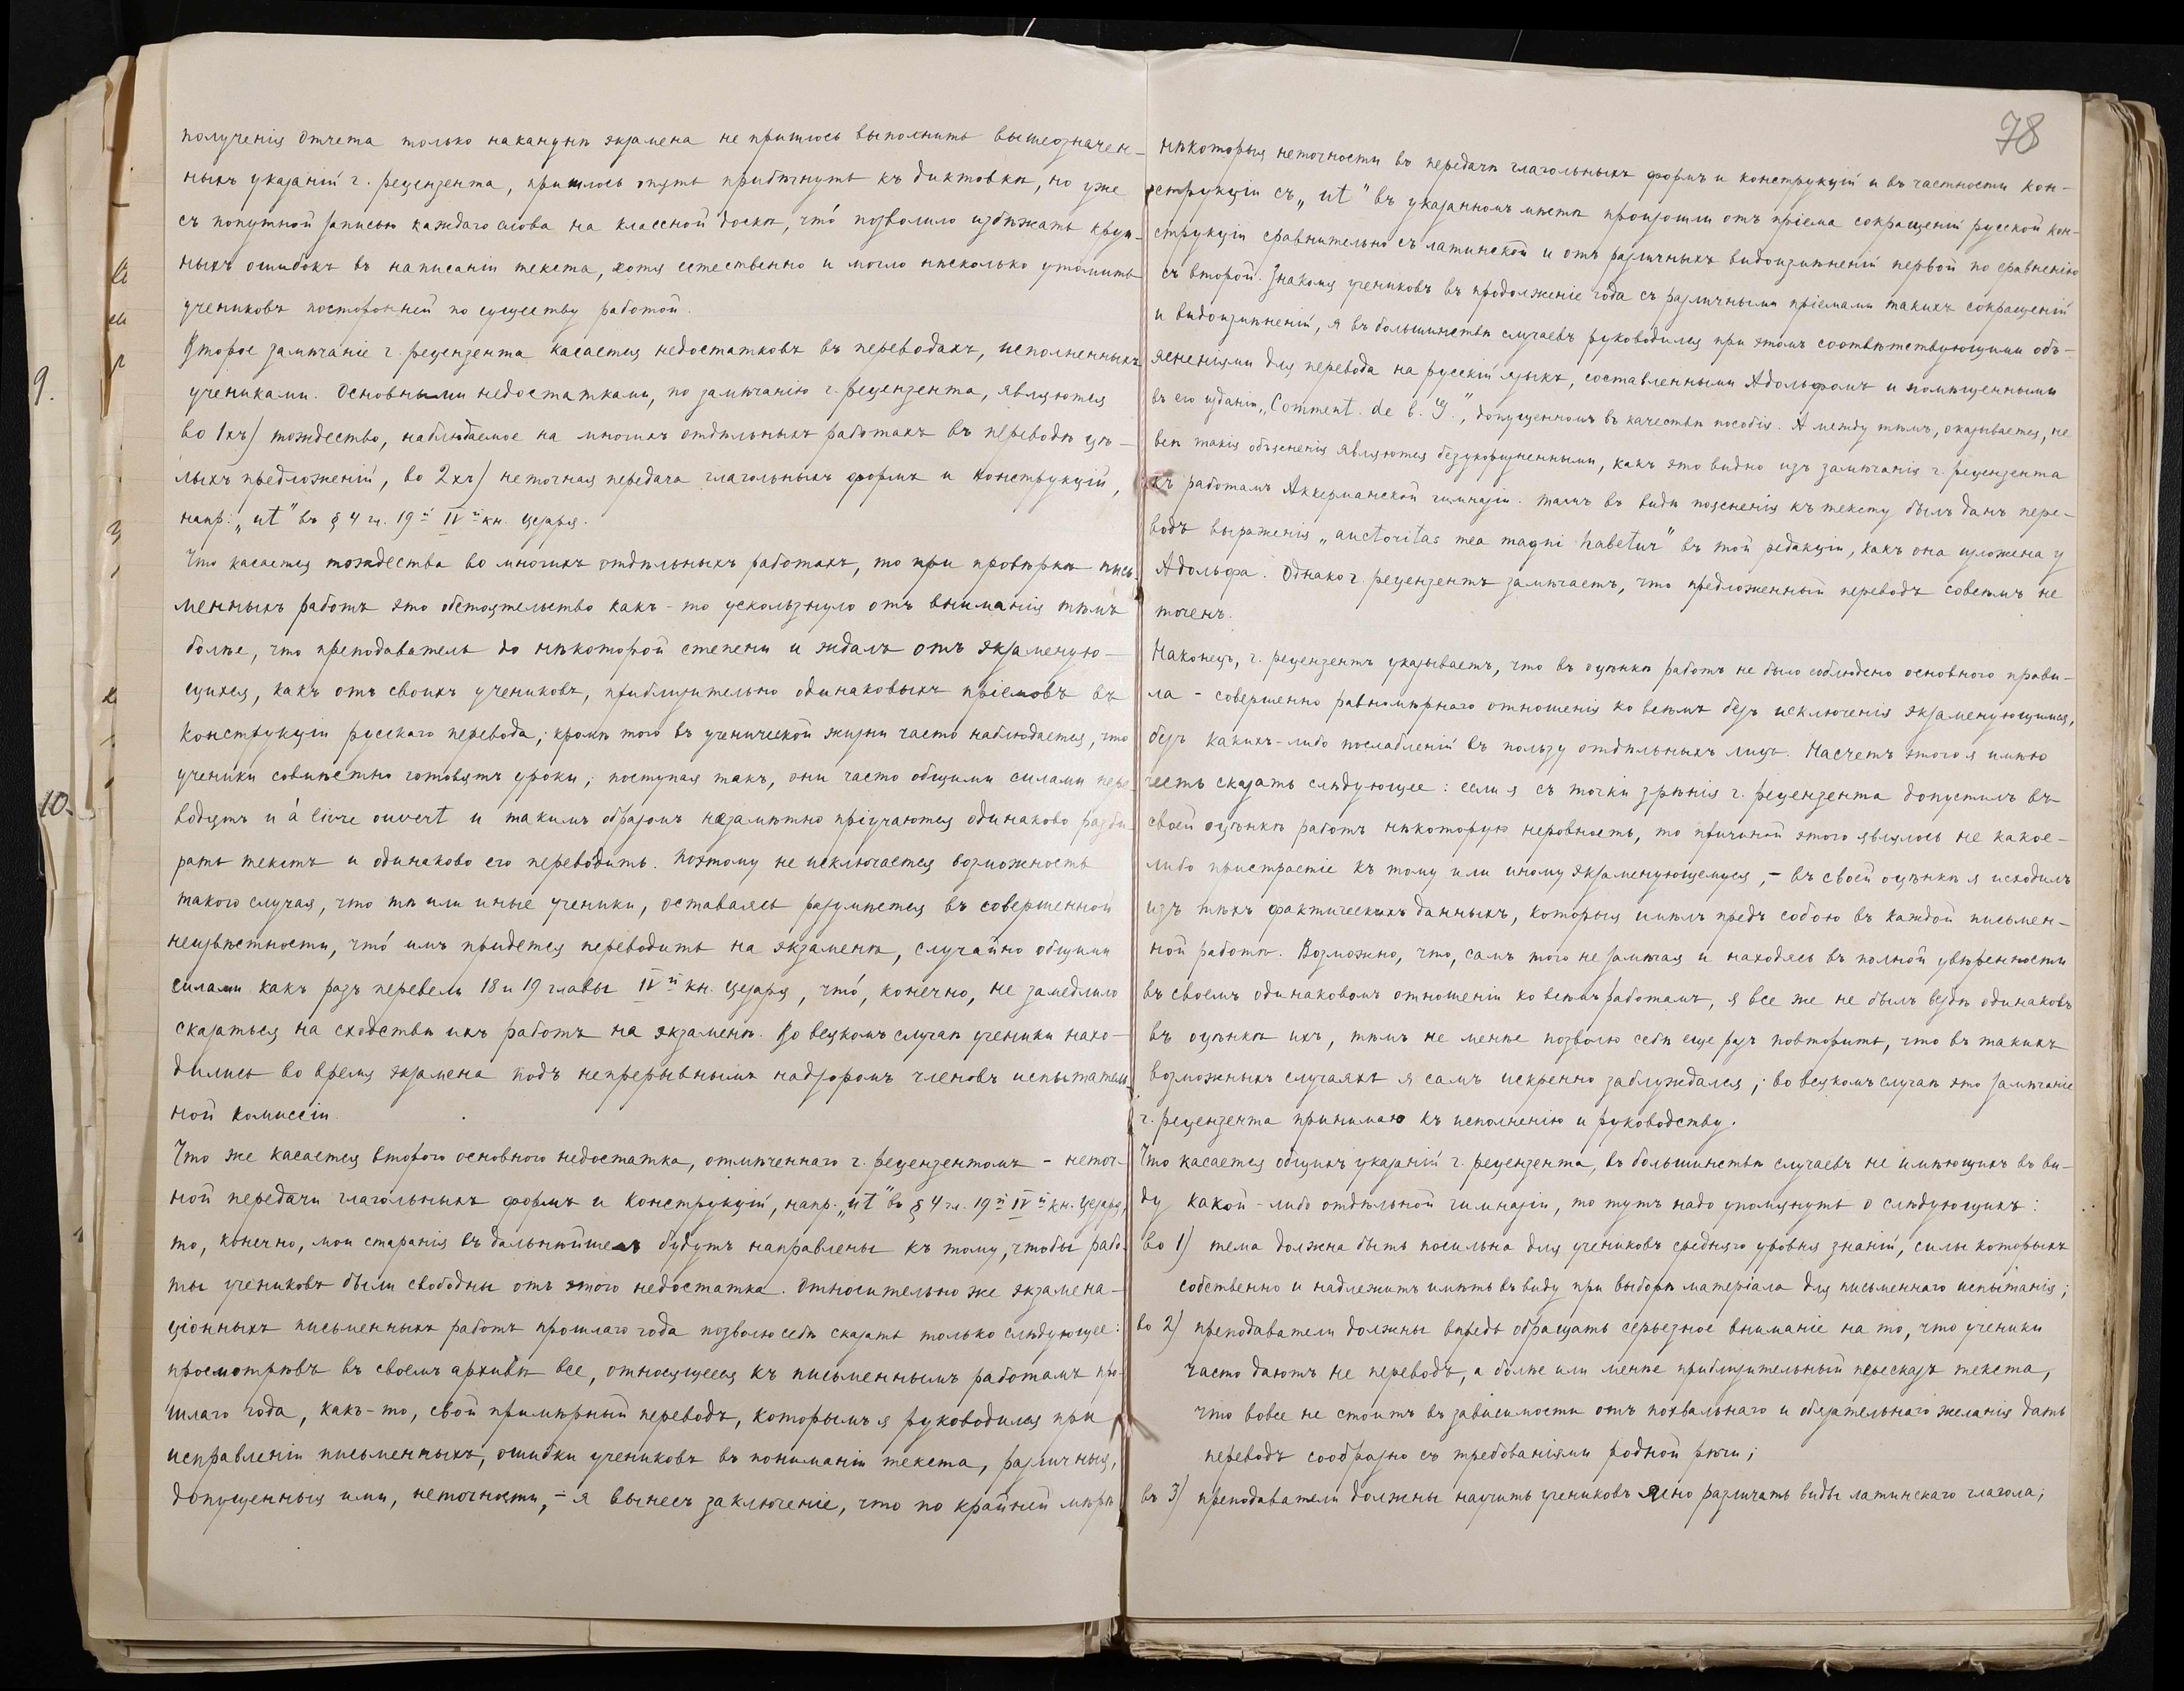 полученія отчета только наканунѣ экзамена не пришлось выполнить вышеозначен-
ныхъ указаній г. рецензента, пришлось опять прибѣгнуть къ диктовкѣ, но уже
съ попутной записью каждаго слова на классной доскѣ, что́ позволило избѣжать круп-
ныхъ ошибокъ въ написаніи текста, хотя естественно и могло нѣсколько утомить
учениковъ посторонней по существу работой.
Второе замѣчаніе г. рецензента касается недостатковъ въ переводахъ, исполненныхъ
учениками. Основными недостатками, по замѣчанію г. рецензента, являются
во 1хъ) тождество, наблюдаемое на многихъ отдѣльныхъ работахъ въ переводѣ цѣ-
лыхъ предложеній, во 2хъ) неточная передача глагольныхъ формъ и конструкцій,
напр. „ut" въ § 4 гл. 19й IVй кн. Цезаря.
Что касается тождества во многихъ отдѣльныхъ работахъ, то при провѣркѣ пись-
менныхъ работъ это обстоятельство какъ-то ускользнуло отъ вниманія тѣмъ
болѣе, что преподаватель до нѣкоторой степени и ждалъ отъ экзаменую-
щихся, какъ отъ своихъ учениковъ, приблизительно одинаковыхъ пріемовъ въ
конструкціи русскаго перевода; кромѣ того въ ученической жизни часто наблюдается, что
ученики совмѣстно готовятъ уроки; поступая такъ, они часто общими силами пере-
водятъ и à livre ouvert и такимъ образомъ незамѣтно пріучаются одинаково разби-
рать текстъ и одинаково его переводить. Поэтому не исключается возможность
такого случая, что тѣ или иные ученики, оставаясь разумѣется въ совершенной
неизвѣстности, что́ имъ придется переводить на экзаменѣ, случайно общими
силами какъ разъ перевели 18 и 19 главы IVй кн. Цезаря, что́, конечно, не замедлило
сказаться на сходствѣ ихъ работъ на экзаменѣ. Во всякомъ случаѣ ученики нахо-
дились во время экзамена подъ непрерывнымъ надзоромъ членовъ испытатель-
ной комиссіи.
Что же касается второго основного недостатка, отмѣченнаго г. рецензентомъ - неточ-
ной передачи глагольныхъ формъ и конструкцій, напр. „ut" въ § 4 гл. 19й IVй кн. Цезаря,
то, конечно, мои старанія въ дальнѣйшемъ будутъ направлены къ тому, чтобы рабо-
ты учениковъ были свободны отъ этого недостатка. Относительно же экзамена-
ціонныхъ письменныхъ работъ прошлаго года позволю себѣ сказать только слѣдующее:
просмотрѣвъ въ своемъ архивѣ все, относящееся къ письменнымъ работамъ про-
шлаго года, какъ-то, свой примѣрный переводъ, которымъ я руководился при
исправленіи письменныхъ, ошибки учениковъ въ пониманіи текста, различныя,
допущенныя ими, неточности, - я вынесъ заключеніе, что по крайней мѣрѣ
9.
10.
78
нѣкоторыя неточности въ передачѣ глагольныхъ формъ и конструкцій и въ частности кон-
струкціи съ „ut" въ указанномъ мѣстѣ произошли отъ пріема сокращеній русской кон-
струкціи сравнительно съ латинской и отъ различныхъ видоизмѣненій первой по сравненію
съ второй. Знакомя учениковъ въ продолженіе года съ различными пріемами такихъ сокращеній
и видоизмѣненій, я въ большинствѣ случаевъ руководился при этомъ соотвѣтствующими объ-
ясненіями для перевода на русскій языкъ, составленными Адольфомъ и помѣщенными
въ его изданіи „Comment. de b. G.", допущенномъ въ качествѣ пособія. А между тѣмъ, оказывается, не
всѣ такія объясненія являются безукоризненными, какъ это видно изъ замѣчанія г. рецензента
къ работамъ Аккерманской гимназіи. Тамъ въ видѣ поясненія къ тексту былъ данъ пере-
водъ выраженія „auctoritas mea magni habetur" въ той редакціи, какъ она изложена у
Адольфа. Однако г. рецензентъ замѣчаетъ, что предложенный переводъ совсѣмъ не
точенъ.
Наконецъ, г. рецензентъ указываетъ, что въ оцѣнкѣ работъ не было соблюдено основного прави-
ла - совершенно равномѣрнаго отношенія ко всѣмъ безъ исключенія экзаменующимся,
безъ какихъ-либо послабленій въ пользу отдѣльныхъ лицъ. Насчетъ этого я имѣю
честь сказать слѣдующее: если я съ точки зрѣнія г. рецензента допустилъ въ
своей оцѣнкѣ работъ нѣкоторую неровность, то причиной этого являлось не какое-
либо пристрастіе къ тому или иному экзаменующемуся, - въ своей оцѣнкѣ я исходилъ
изъ тѣхъ фактическихъ данныхъ, которыя имѣлъ предъ собою въ каждой письмен-
ной работѣ. Возможно, что, самъ того не замѣчая и находясь въ полной увѣренности
въ своемъ одинаковомъ отношеніи ко всѣмъ работамъ, я все же не былъ вездѣ одинаковъ
въ оцѣнкѣ ихъ, тѣмъ не менѣе позволю себѣ еще разъ повторить, что въ такихъ
возможныхъ случаяхъ я самъ искренно заблуждался; во всякомъ случаѣ это замѣчаніе
г. рецензента принимаю къ исполненію и руководству.
Что касается общихъ указаній г. рецензента, въ большинствѣ случаевъ не имѣющихъ въ ви-
ду какой-либо отдѣльной гимназіи, то тутъ надо упомянуть о слѣдующихъ:
во 1) тема должна быть посильна для учениковъ средняго уровня знаній, силы которыхъ
собственно и надлежитъ имѣть въ виду при выборѣ матеріала для письменнаго испытанія;
во 2) преподаватели должны впредь обращать серьезное вниманіе на то, что ученики
часто даютъ не переводъ, а болѣе или менѣе приблизительный пересказъ текста,
что вовсе не стоитъ въ зависимости отъ похвальнаго и обязательнаго желанія дать
переводъ сообразно съ требованіями родной рѣчи;
въ 3) преподаватели должны научить учениковъ ясно различать виды латинскаго глагола;